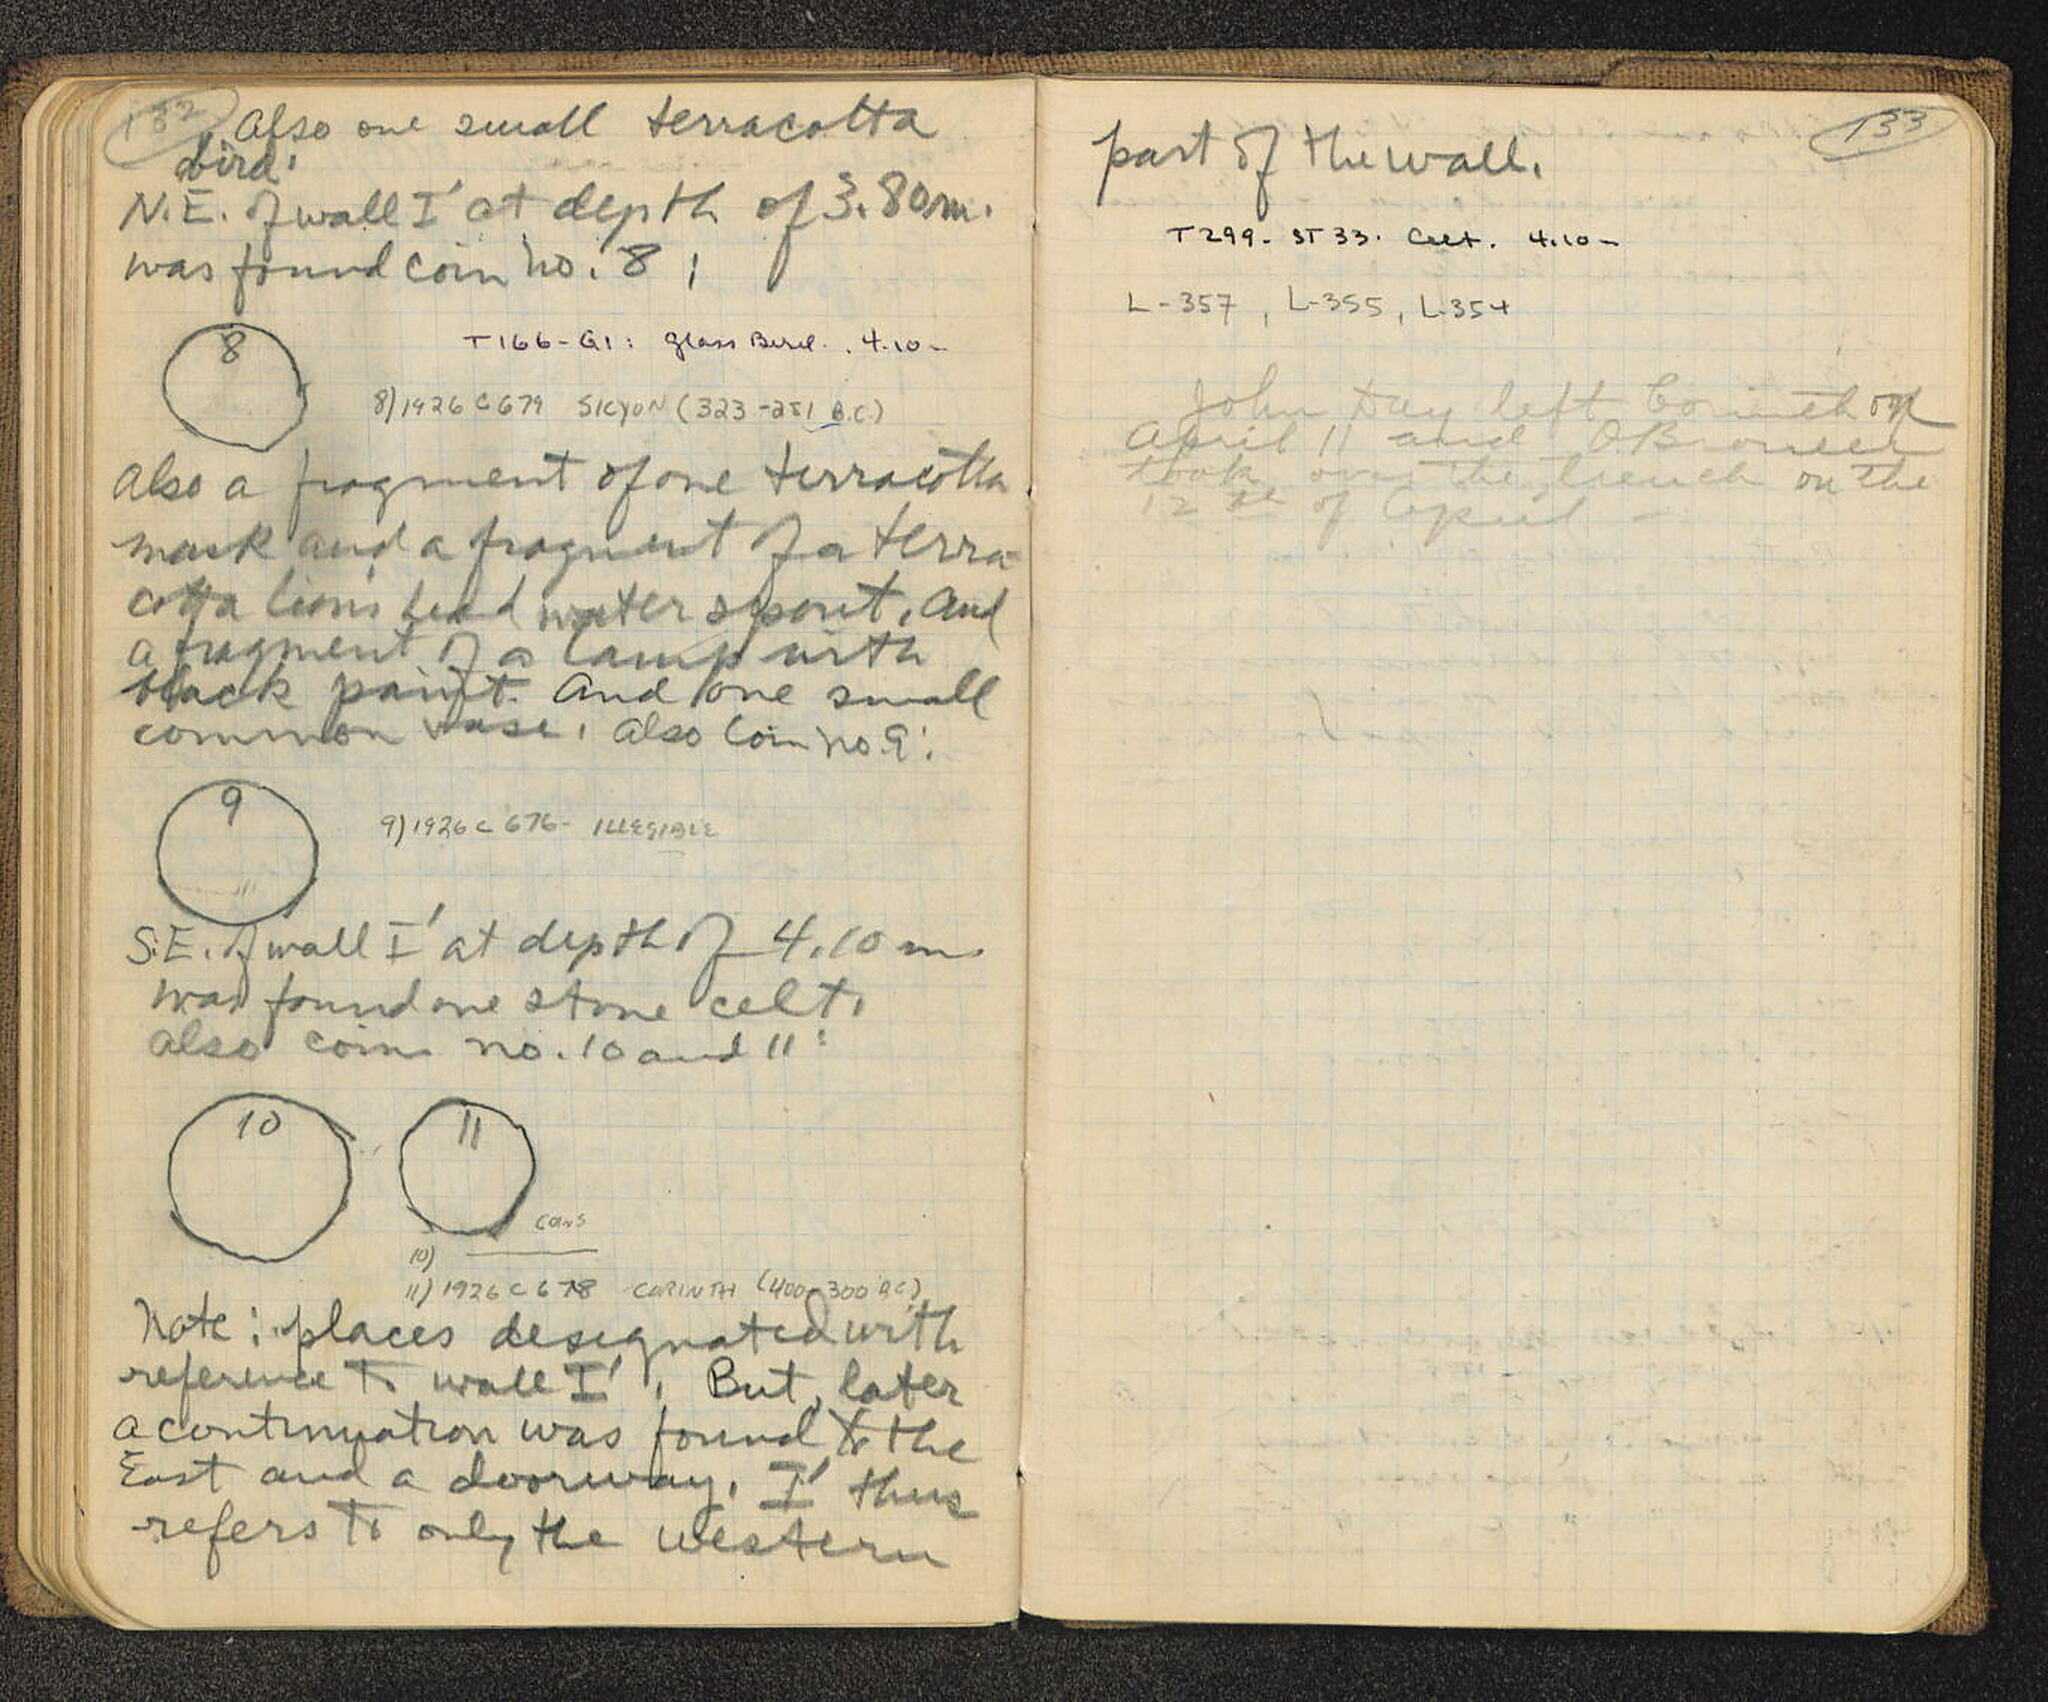 132
Also one small terracotta
bird.
N.E. of wall I' at depth of 3.80 m.
was found coin no. 8 :
8
T166-G1: Glass Bird. . 4.10-
8) 1926 C 679 SICYON (323-251 B.C.)
Also a fragment of one terracotta
mask and a fragment of a terra-
cotta lion's head water spout. And
a fragment of a lamp with
black paint. And one small
common vase. Also Coin no. 9:
9
9) 1926 C 676- ILLEGIBLE
S.E. of wall I' at depth of 4.10 m.
was found one stone celt.
Also coins no. 10 and 11:
10
11
10)
11) 1926 C 678 CORINTH (400-300 BC)
Note: places designated with
reference to wall I'. But, later
a continuation was found to the
East and a doorway. I' thus
refers to only the western
133
part of the wall.
T299- ST33. Celt. 4.10-
L-357, L-355, L-354
John Day left Corinth on
April 11 and O. Broneer
took over the trench on the
12 of April -